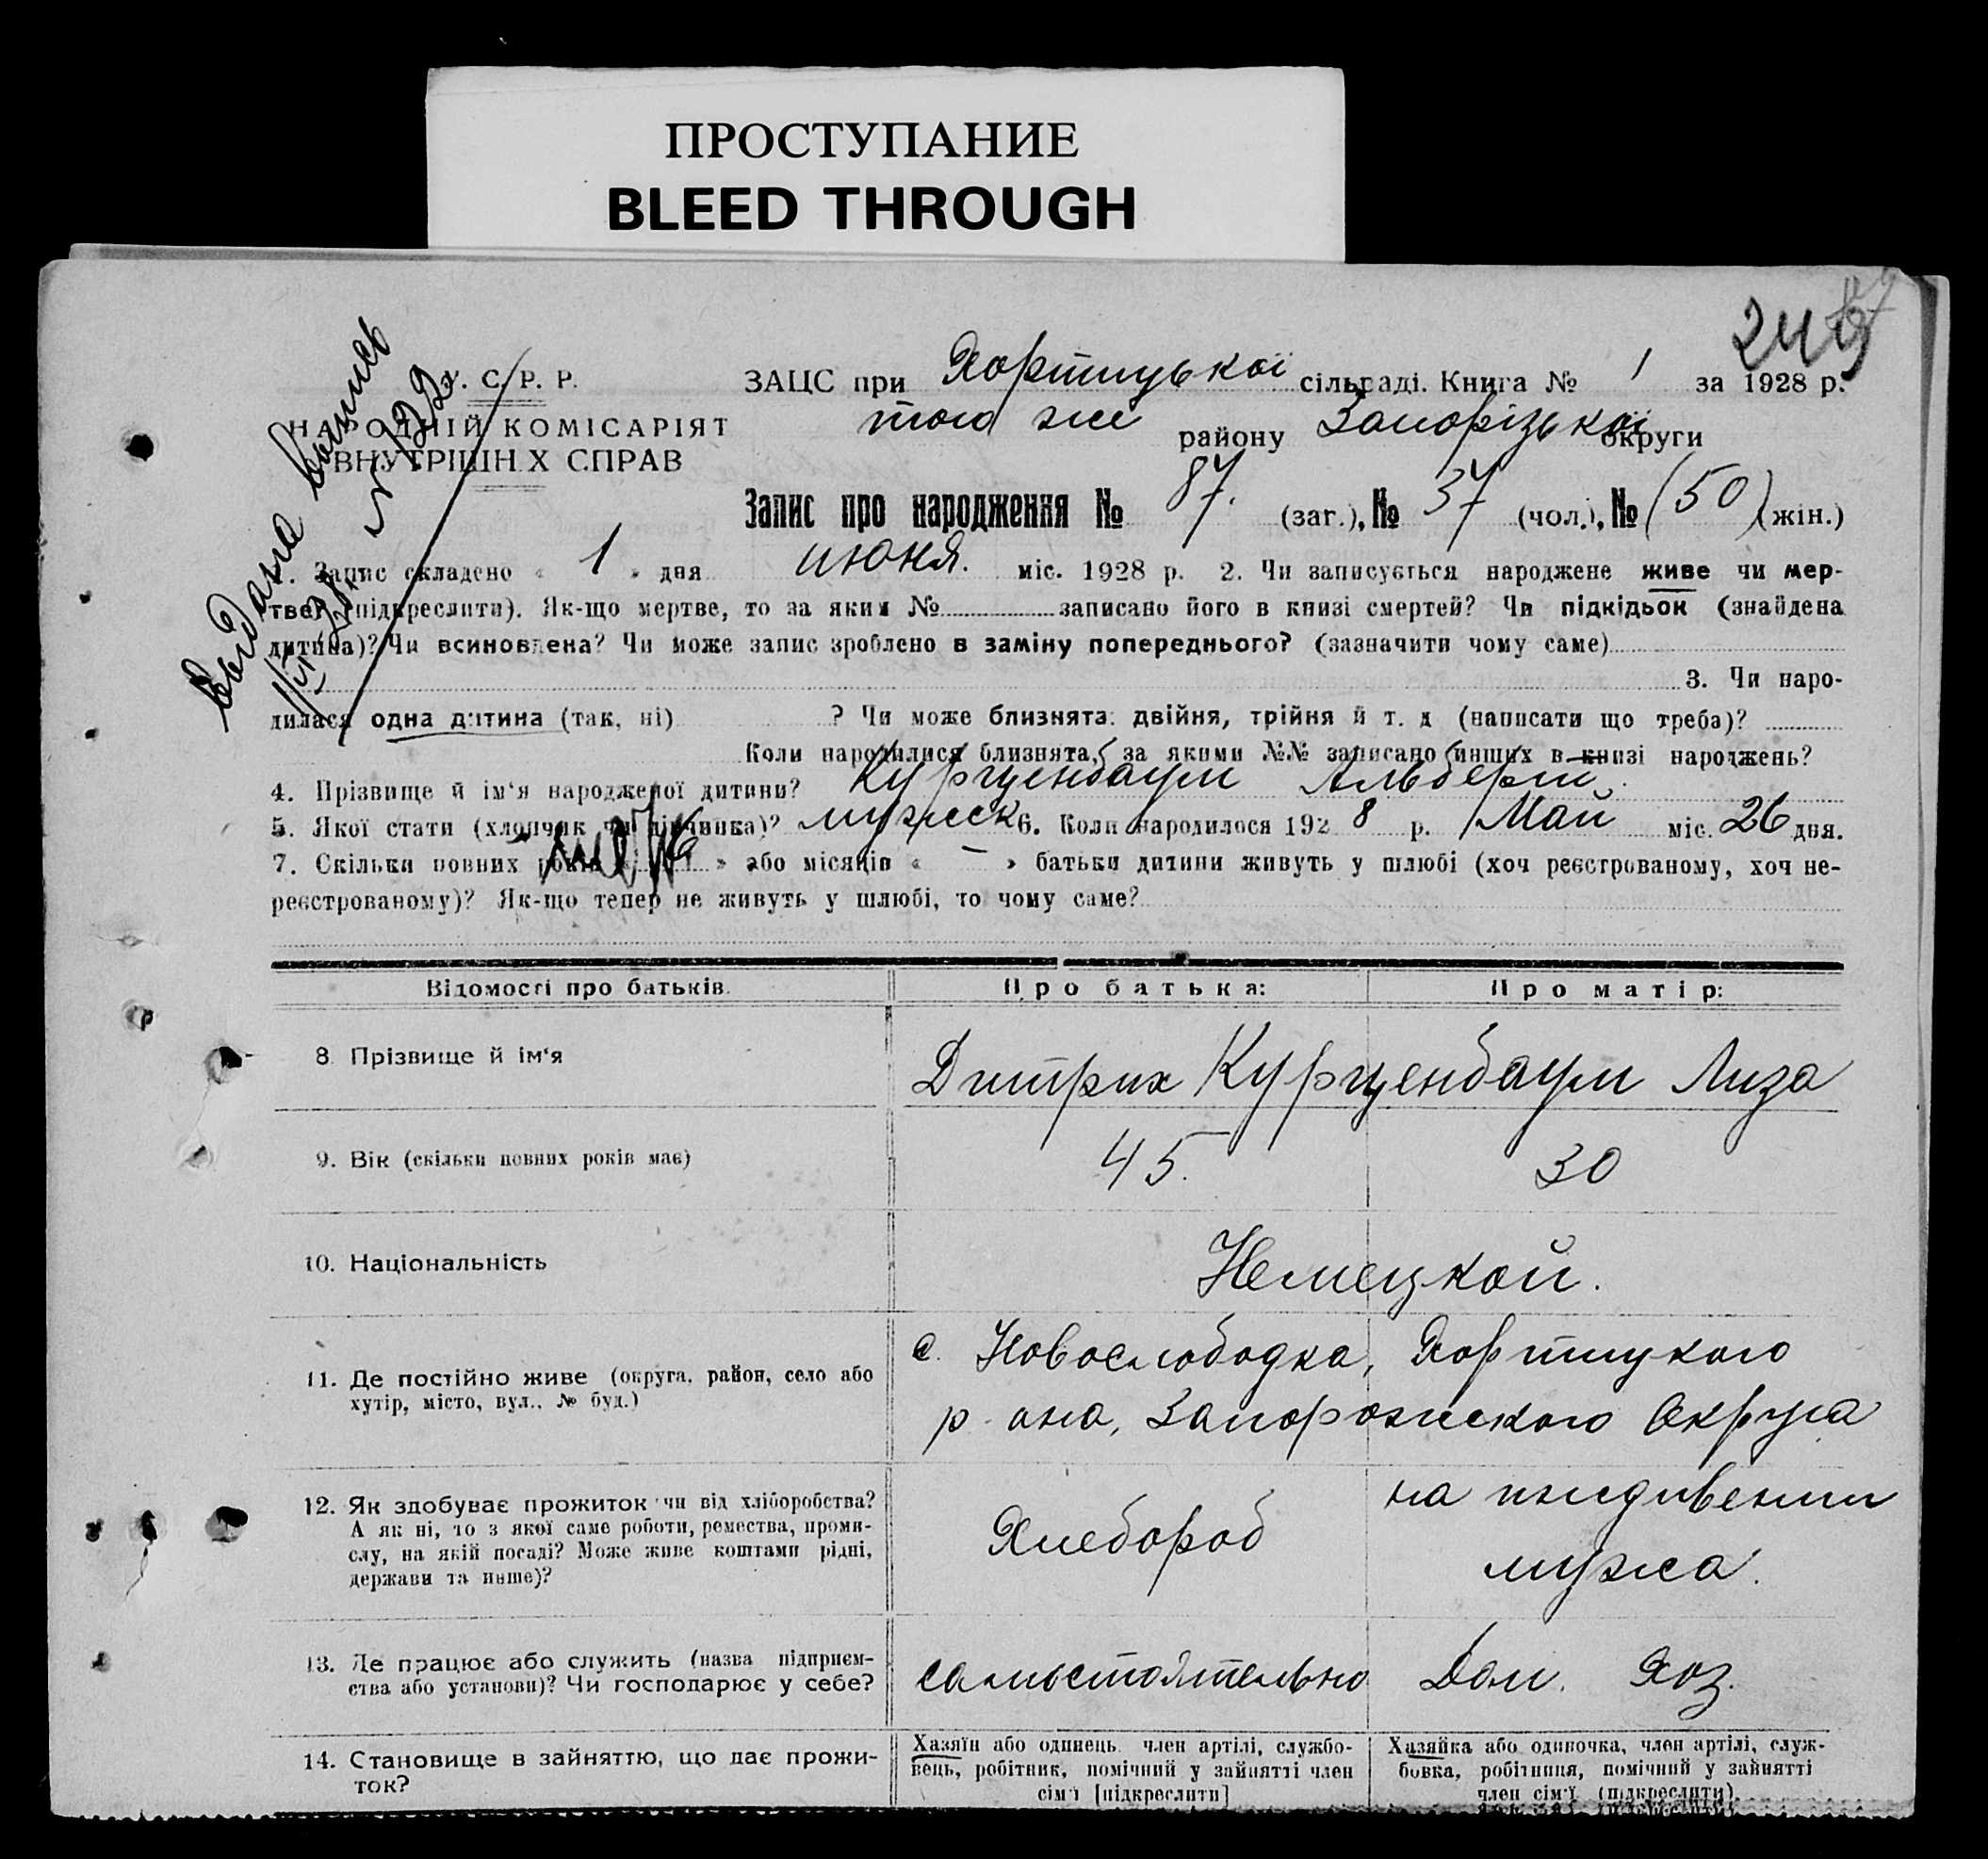 ПРОСТУПАНИЕ
BLEED THROUGH
249
У. С. Р. Р.
НАРОДНІЙ КОМІСАРІЯТ
ВНУТРІШНІХ СПРАВ
ЗАЦС при Хортицької сільраді. Книга № 1 за 1928 р.
того же району Запорізької округи
Запис про народження № 87. (заг.), № 37 (чол.), № (50) (жін.)
Видана выпись
1. Запис складено « 1 » дня июня. міс. 1928 р. 2. Чи записується народжене живе чи мер-
тве (підкреслити). Як-що мертве, то за яким № записано його в книзі смертей? Чи підкідьок (знайдена
дитина)? Чи всиновлена? Чи може запис зроблено в заміну попереднього? (зазначити чому саме)
3. Чи наро-
дилася одна дитина (так, ні) ? Чи може близнята: двійня, трійня й т. д (написати що треба)?
Коли народилися близнята, за якими №№ записано инших в книзі народжень?
4. Прізвище й ім‘я народженої дитини? Курценбаум Альберт.
5. Якої стати (хлопчик чи дівчинка)? мужск 6. Коли народилося 1928 р. Май міс. 26 дня.
7. Скільки повних років « » або місяців « – » батьки дитини живуть у шлюбі (хоч реєстрованому, хоч не-
реєстрованому)? Як-що тепер не живуть у шлюбі, то чому саме?
Відомості про батьків. Про батька: Про матір:
8. Прізвище й ім‘я Дитрих Курценбаум Лиза
9. Вік (скільки повних років має) 45. 30
10. Національність Немецкой.
11. Де постійно живе (округа, район, село або
хутір, місто, вул., № буд.)
с. Новослободка, Хортицкого
р-она, Запорожского Округа
12. Як здобуває прожиток чи від хліборобства?
А як ні, то з якої саме роботи, ремества, проми-
слу, на якій посаді? Може живе коштами рідні,
держави та инше)?
Хлебороб
на иждивении
мужа.
13. Де працює або служить (назва підприєм-
ства або установи)? Чи господарює у себе?
самостоятельно Дом. Хоз.
14. Становище в зайняттю, що дає прожи-
ток?
Хазяїн або одинець, член артілі, службо-
вець, робітник, помічний у зайнятті член
сім‘ї [підкреслити]
Хазяйка або одиночка, член артілі, служ-
бовка, робітниця, помічний у зайнятті
член сім‘ї (підкреслити)